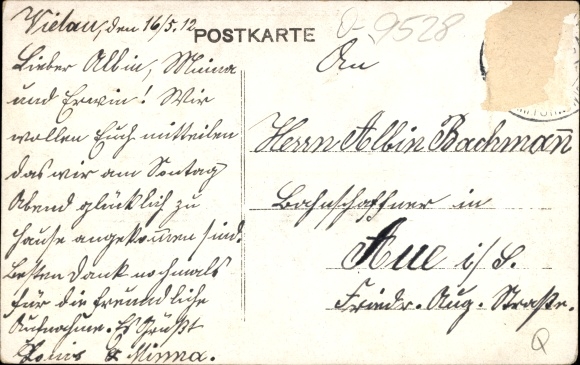 Vielau, den 16/5. 12
POSTKARTE
O-9528
Lieber Albin, Minna
und Erwin! Wir
wollen Euch mitteilen
das wir am Sontag
Abend glücklich zu
Hause angekommen sind.
Besten Dank nochmals
für die freundliche
Aufnahme. Es Grüßt
Louis & Minna.
An
Herrn Albin Bachmann
Bahnschaffner in
Aue i/S.
Friedr. Aug. Straße.
Q